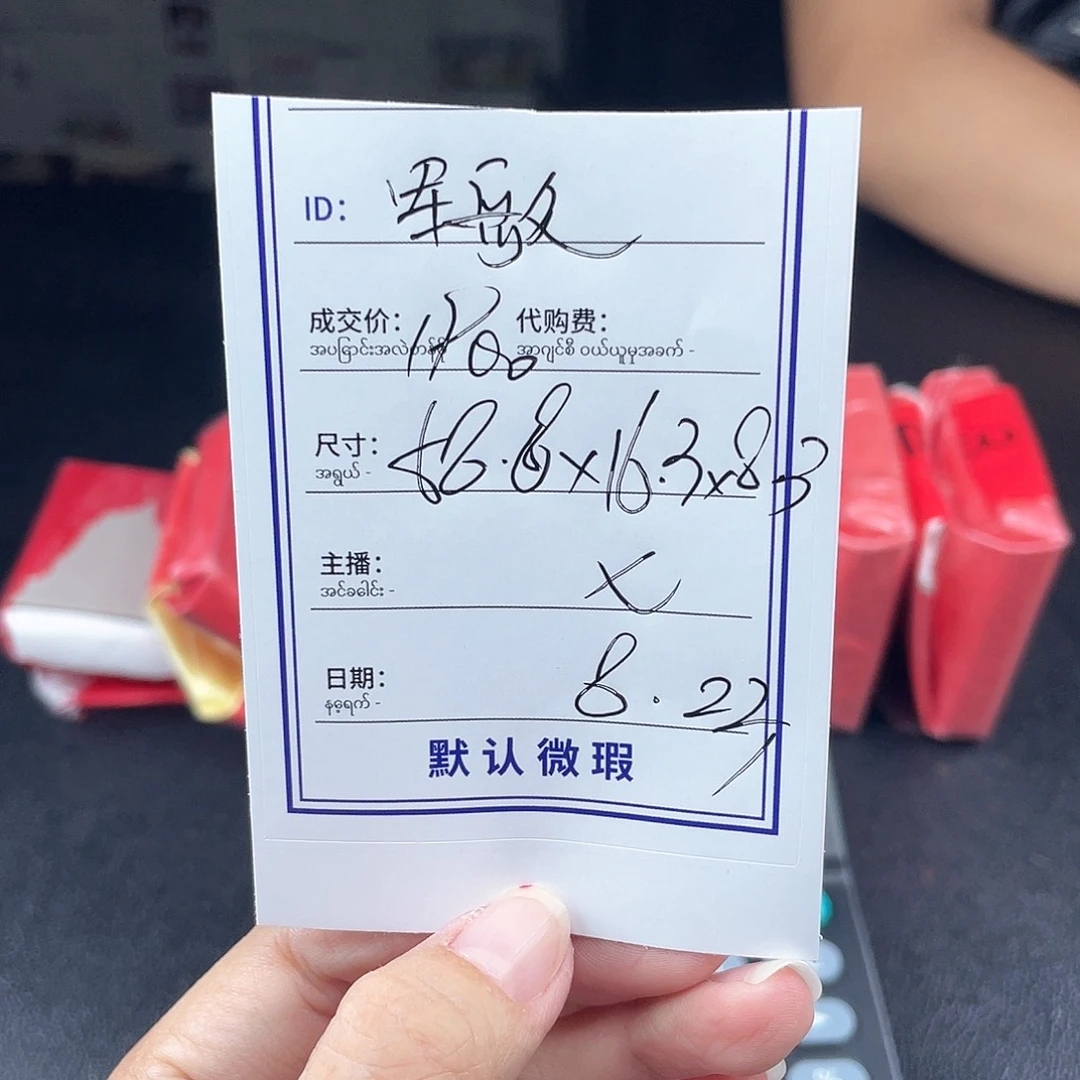 ID：军敏
成交价： 代购费：
အပြောင်းအလဲတန်ဖိုး အာဂျင်စီ ဝယ်ယူမှုအခက် -
尺寸：58.8×16.3×8.3
အရွယ် -
主播：X
အင်ခေါင်း -
日期：8.22
နေ့ရက် -
默认微瑕